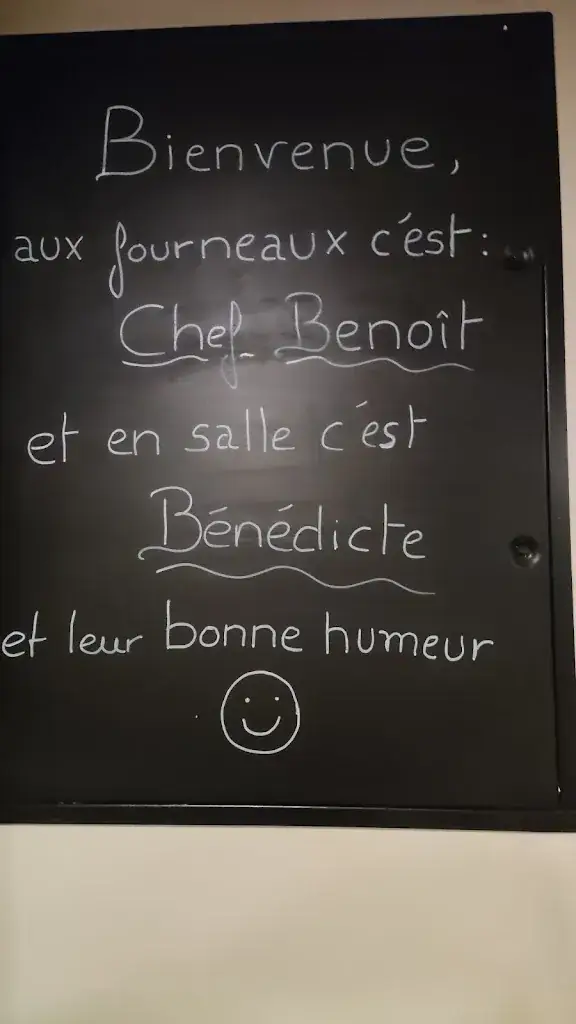 Bienvenue,
aux fourneaux c'est :
Chef Benoît
et en salle c'est
Bénédicte
et leur bonne humeur